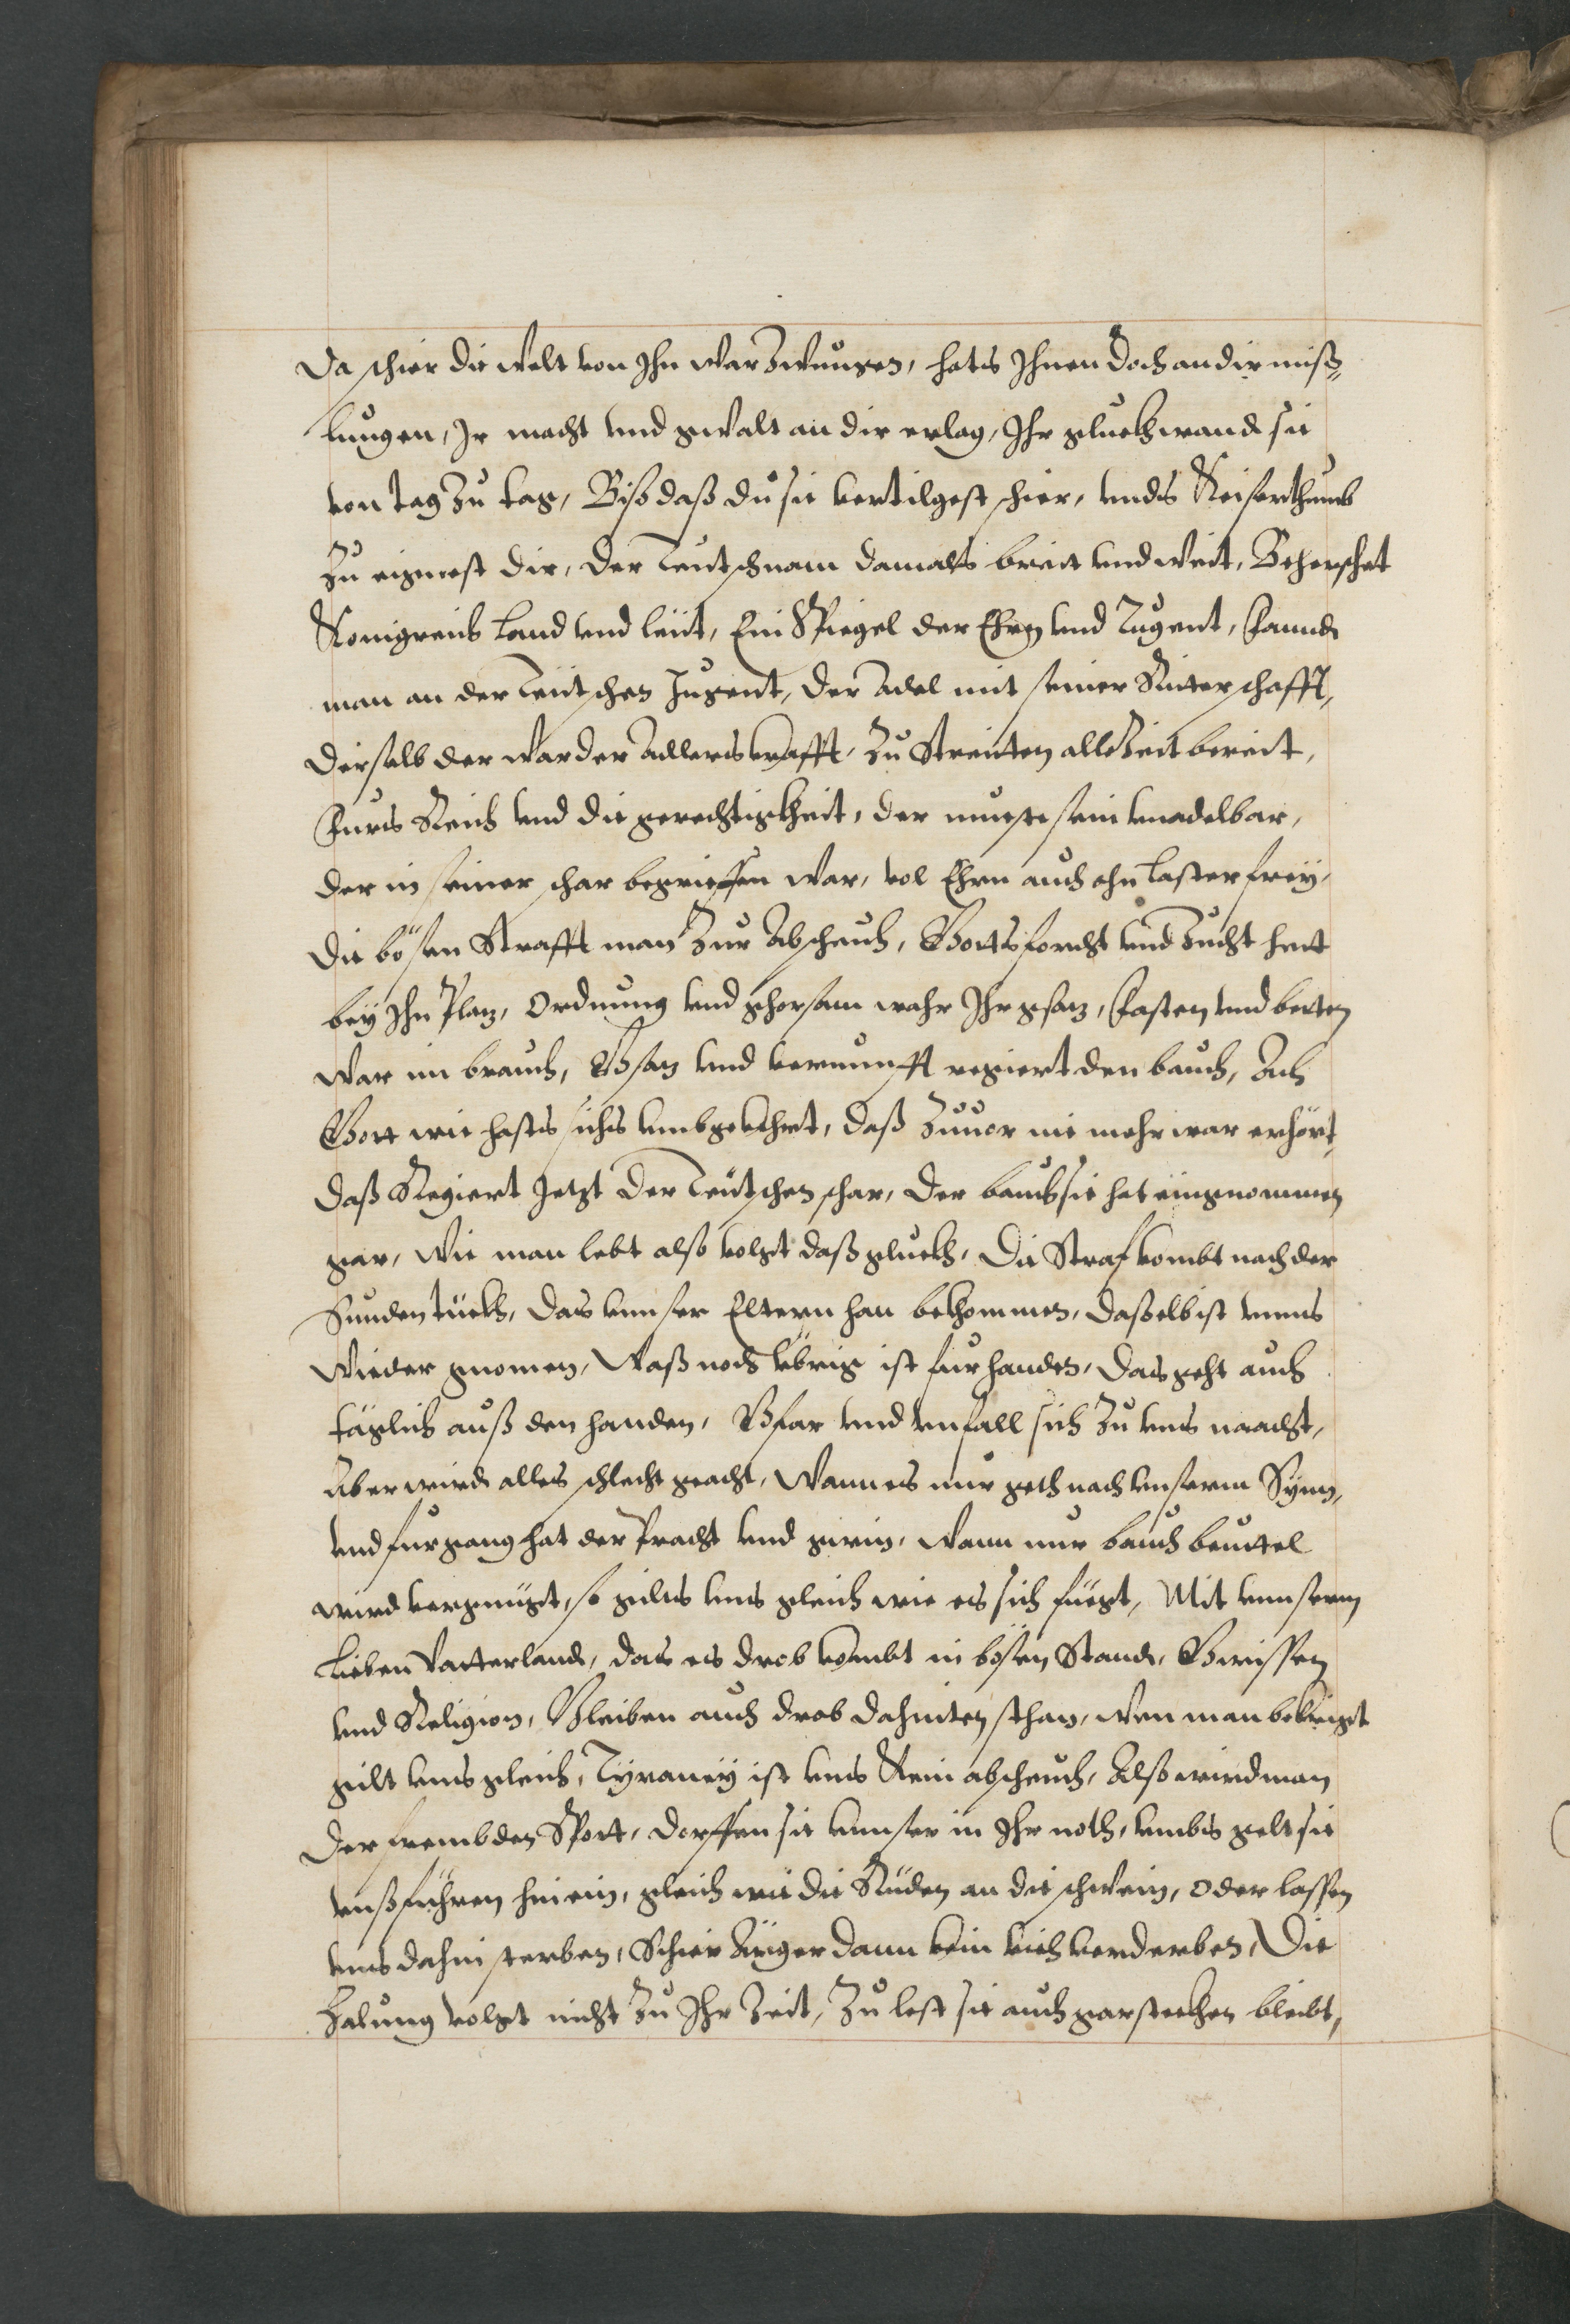 Da schier die welt von Ihn war zwungen, hats Ihnen doch an dir miß-
lungen, Ir macht und gwalt an dir erlag, Ihr gluckh wandt sie
von tag zu tag, Biß daß du sie vertilgest schier, unds Keiserthumb
zu eignest dir, der Teutsch nam damals breit und weit, Beherschet
Konigreich Land und leüt, Ein Spiegel der Ehrn und Tugent, Fanndt
man an der Teütschen Jugent, der Adel mit seiner Ritterschafft,
dieselb der war der Adlers krafft, zu Streitten alle Zeit bereit,
Furs Reich und die gerechtigkheit, der mueste sein unadelbar,
der in seiner schar begrieffen war, vol Ehrn auch ohn Laster frey,
die bösen Strafft man zur Abscheuch, Gotts forcht und Zucht hett
bey Ihn Plaz, Ordnung und ghorsam wahr Ihr gsaz, Fasten und betten
war im brauch, Gsaz und vernunfft regiert den bauch, Ach
Gott wie hasts sichs umbgekhert, daß zuuor nie mehr war erhört,
daß Regiert Jetzt der Teütschen schar, der bauch sie hat eingnommen
gar, Wie man lebt also volgt daß gluckh, Die Straf kombt nach der
Sünden tückh, das unnser Eltern han bekhommen, daßelb ist unns
wieder gnomen, Waß noch übrig ist furhanden, das geht auch
täglich auß den handen, Gfar und unfall sich zu uns naacht,
Aber wirdt alles schlecht geacht, Wann es nur geth nach unserm Synn,
und furgang hat der Pracht und gwin, Wann nur bauch beuttel
wird vergnügt, so gilts uns gleich wie es sich füegt, Mit unnserm
Lieben Vatterlandt, das es drob kombt in bösen Standt, Gwissen
und Religion, Bleiben auch drob dahinten sthan, Wen man bekriegt
gilt uns gleich, Tyraney ist uns Kein abscheuch, Also wird man
der frembden Spott, dörffen sie unnser in Ihr noth, umbs gelt sie
unß führen hinein, gleich wie die Rüden an die schwein, Oder lassen
uns dahin sterben, Schier Ärger dann kein viech verderben, Die
Zalung volgt nicht zu Ihr Zeit, Zu lest sie auch gar steckhen bleibt,